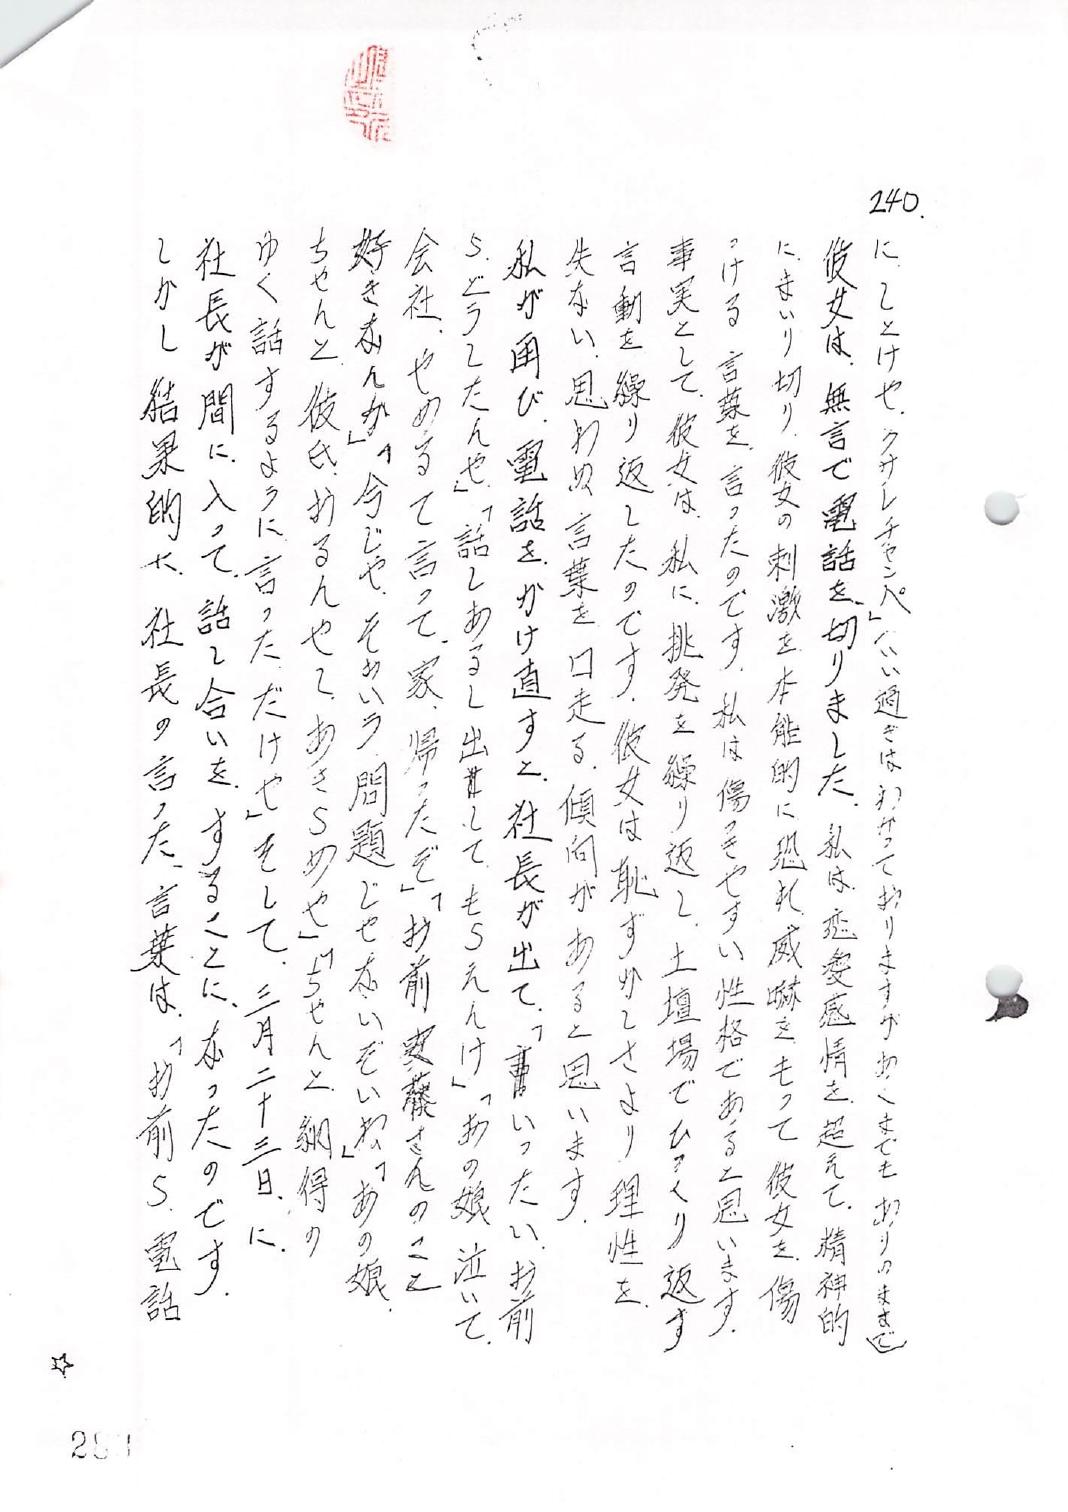 240.
に、しとけや、クサレチャンペ」(いい過ぎはわかっておりますがあくまでもありのままで)
彼女は、無言で電話を、切りました、私は、恋愛感情を、超えて、精神的
に、まいり切り、彼女の刺激を、本能的に恐れ、威嚇を、もって彼女を、傷
つける言葉を、言ったのです、私は傷つきやすい性格であると思います。
事実として、彼女は、私に、挑発を繰り返し、土壇場でひっくり返す
言動を繰り返したのです、彼女は恥ずかしさより理性を、
失ない、思わぬ言葉を口走る、傾向があると思います。
私が再び、電話を、かけ直すと、社長が出て、「いったい、お前
ら、どうしたんや」「話しあるし出して、もらえんけ」「あの娘泣いて、
会社、やめるて言って、家、帰ったぞ」「お前 さんのこと
好きなんか」「今じゃ、そういう問題じゃないぞいね」「あの娘、
ちゃんと、彼氏、おるんやし、あきらめや」「ちゃんと、納得の
ゆく話するように言っただけや」そして、三月二十三日、に、
社長が間に、入って、話し合いを、することに、なったのです。
しかし結果的に、社長の言った、言葉は、「お前ら、電話